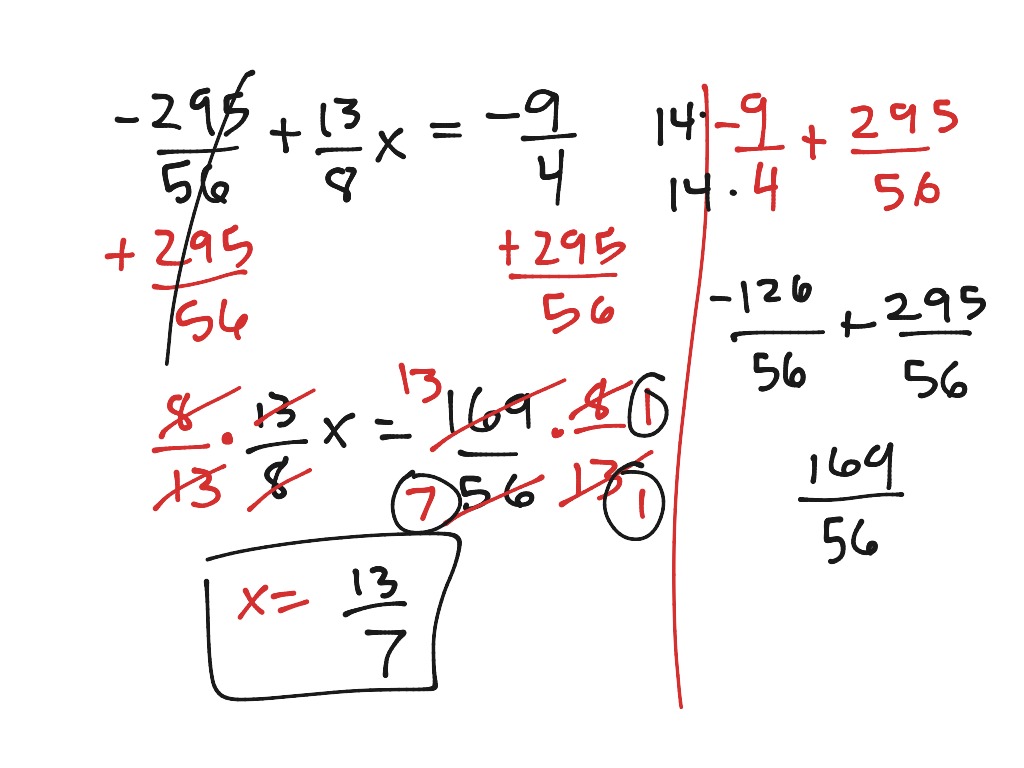 -295/56 + 13/8 x = -9/4
+ 295/56 + 295/56
8/13 · 13/8 x = 169/56 · 8/13
13 1
7 1
x = 13/7
14· -9/14·4 + 295/56
-126/56 + 295/56
169/56